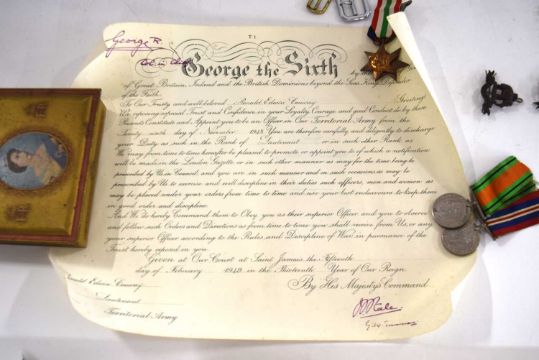 George R
George the Sixth
by the Grace of God
of Great Britain, Ireland and the British Dominions beyond the Seas King, Defender
of the Faith.
To Our Trusty and well-beloved Edwin Greeting
We reposing especial Trust and Confidence in your Loyalty, Courage and good Conduct do by these
Presents Constitute and Appoint you to be an Officer in Our Territorial Army from the
day of November 1948. You are therefore carefully and diligently to discharge
your Duty as such in the Rank of Lieutenant or in such other Rank as
We may from time to time hereafter be pleased to promote or appoint you to of which a notification
will be made in the London Gazette or in such other manner as may for the time being be
prescribed by Us in Council and you are in such manner and on such occasions as may be
prescribed by Us to exercise and well discipline in their duties such officers, men and women as
may be placed under your orders from time to time and use your best endeavours to keep them
in good order and discipline.
And We do hereby Command them to Obey you as their superior Officer and you to observe
and follow such Orders and Directions as from time to time you shall receive from Us, or any
your superior Officer according to the Rules and Discipline of War in pursuance of the
Trust hereby reposed in you.
Given at Our Court at Saint James's the Fifteenth
day of February 1949 in the Thirteenth Year of Our Reign
By His Majesty's Command
Edwin
Lieutenant
Territorial Army